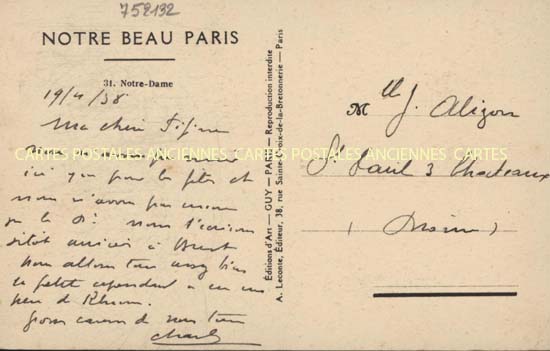 752132
NOTRE BEAU PARIS
31. Notre-Dame
19/4/38
Ma chère Fifine
ici pour les fêtes et
nous n'avons pas encore
vu le Dr nous t'écrirons
sitôt arrivés à Brest
Nous allons tous assez bien
la petite cependant a eu un
peu de Rhume.
Gros baisers de nous tous
Charles
CARTES POSTALES ANCIENNES CARTES POSTALES ANCIENNES CARTES
Éditions d'Art — GUY — PARIS — Reproduction interdite
A. Leconte, Éditeur, 38, rue Sainte-Croix-de-la-Bretonnerie — Paris
Mlle J. Aligon
St Paul 3 Chateaux
(Drôme)